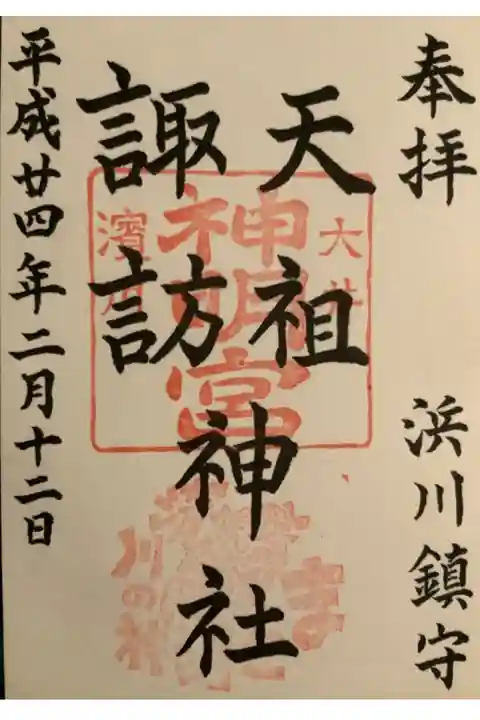 奉拝
浜川鎮守
天祖
諏訪
神社
平成廿四年二月十二日
大井
神明宮